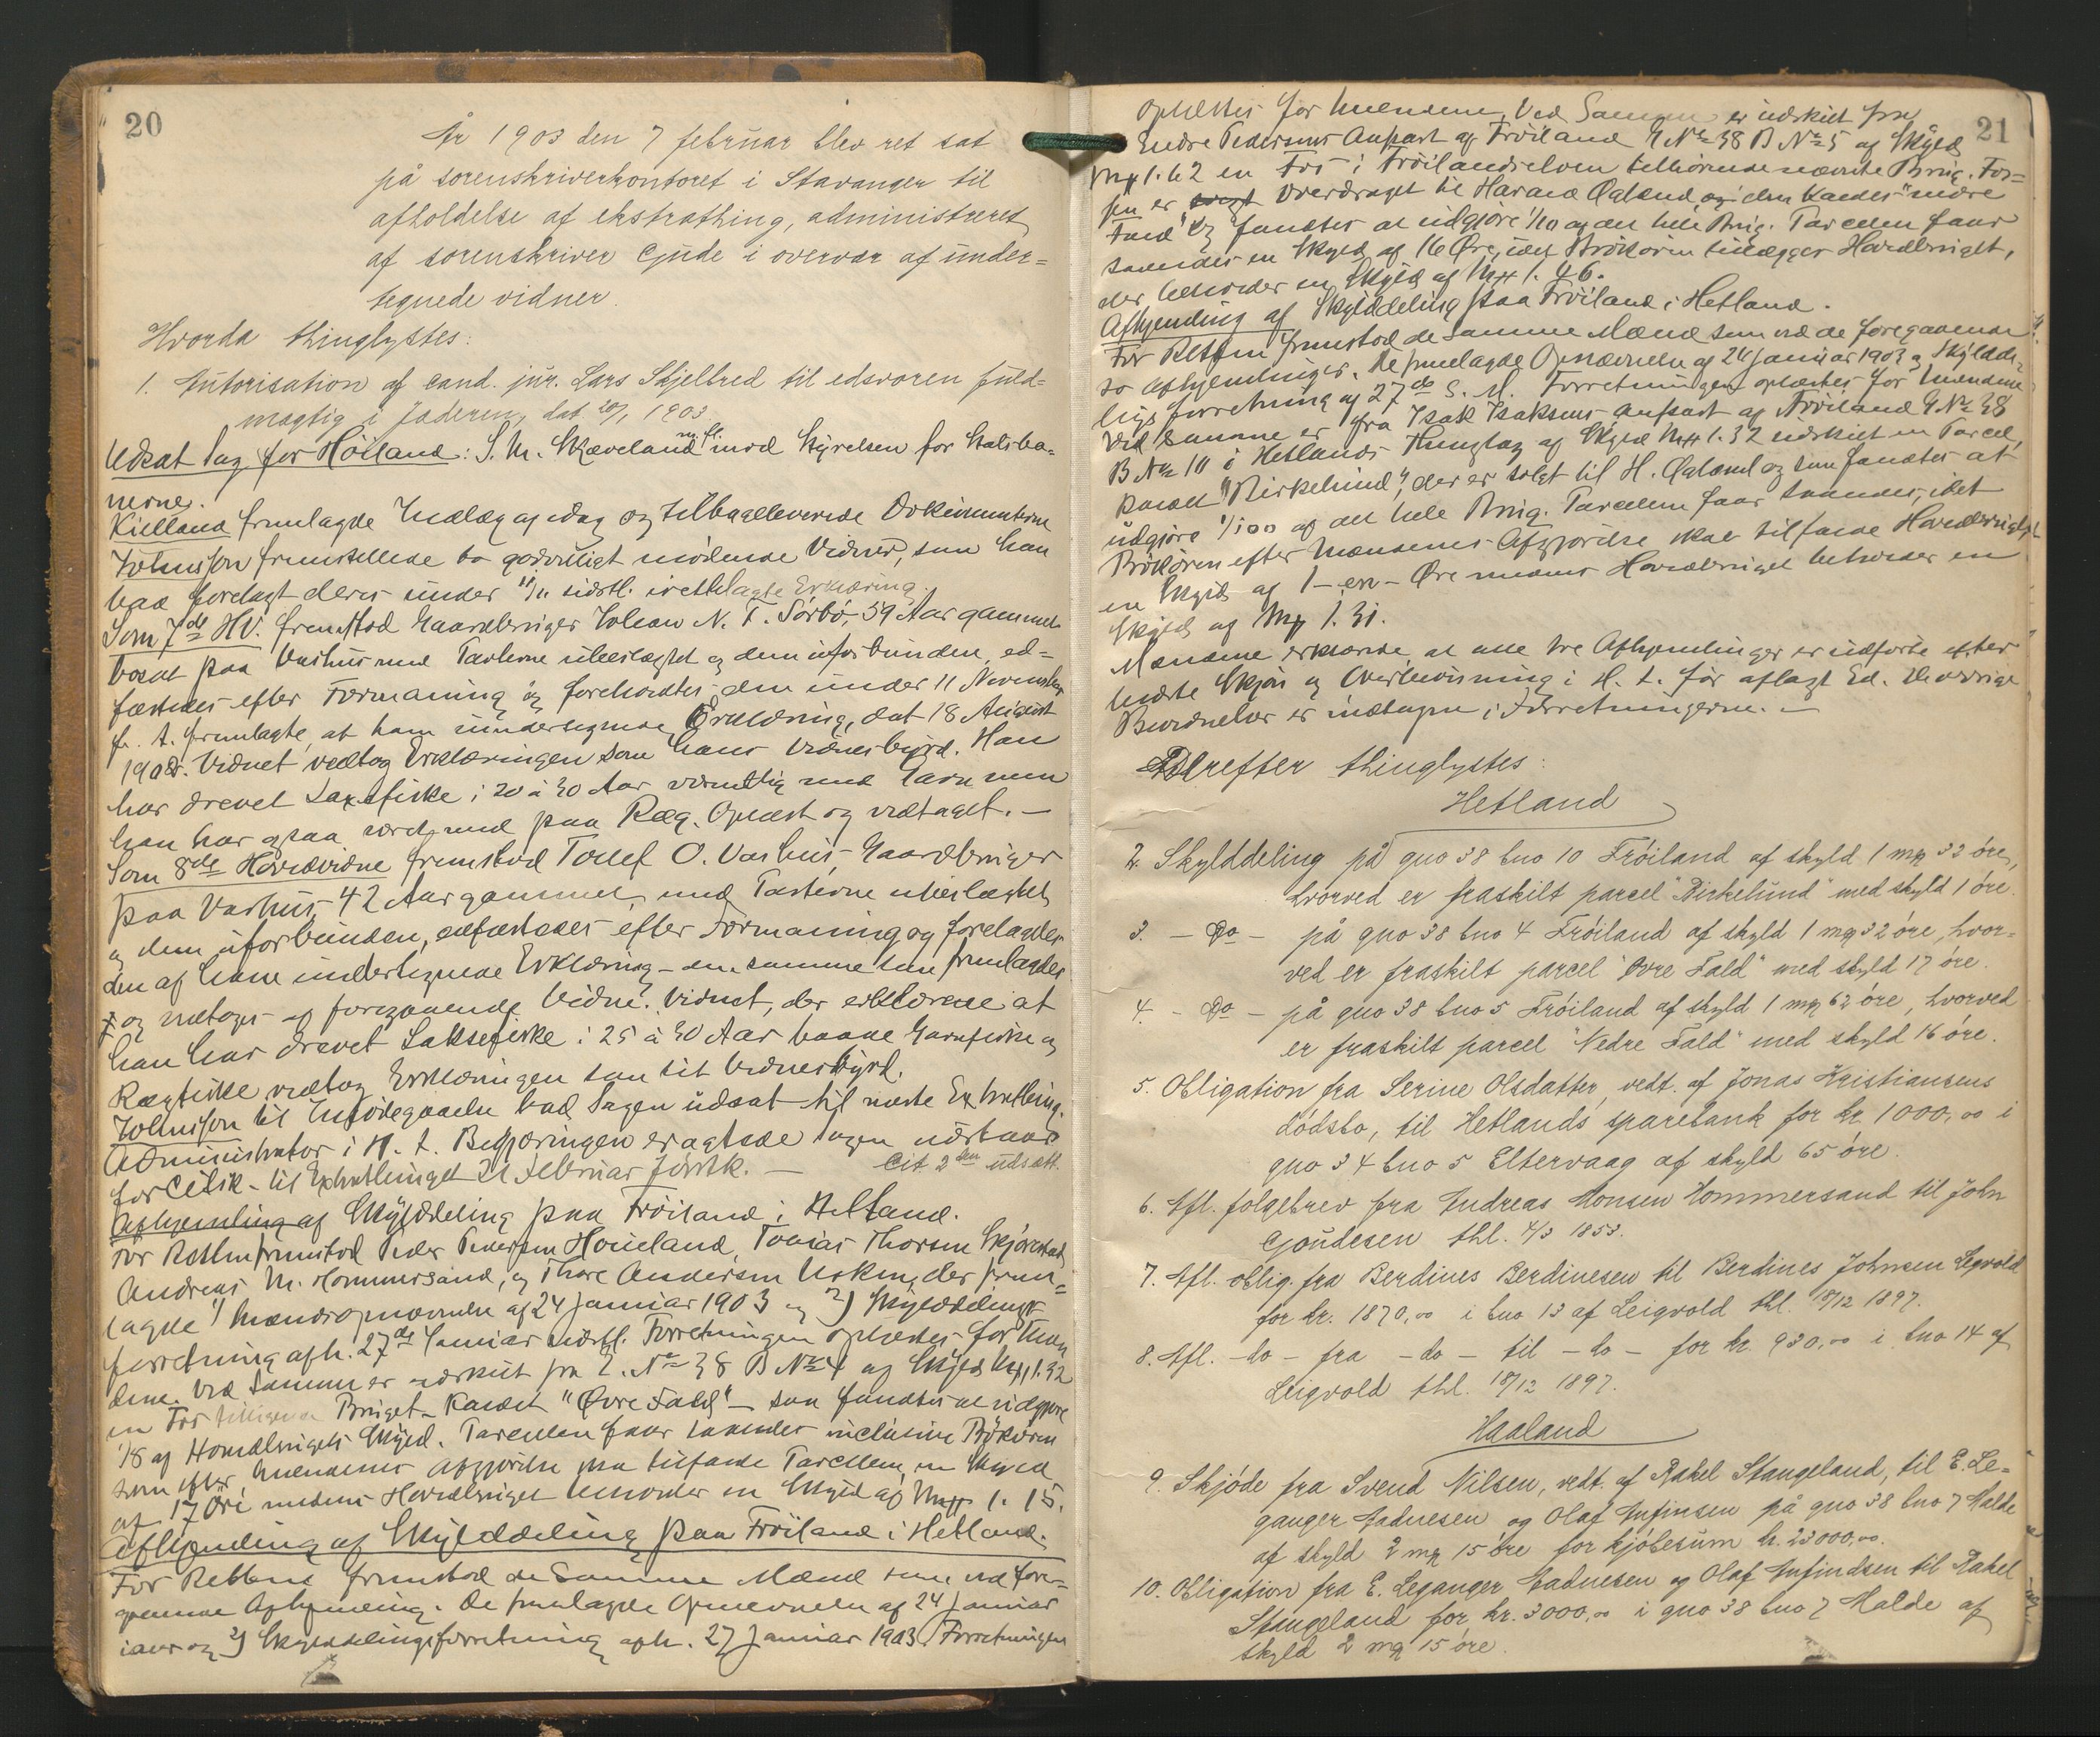 20
År 1903 den 7 februar blev ret sat
på sorenskriverkontoret i Stavanger til
afholdelse af ekstrathing, administreret
af sorenskriver Gjude i overvær af under=
tegnede vidner.
Hvorda thinglystes:
1. Autorisation af cand. jur. Lars Skjelbred til edsvoren fuld=
mægtig i Jæderen, dat. 20/1 1903.
Udsat Sag for Høiland: S. M. Skæveland m. fl. mod Styrelsen for Statsba-
nerne.
Kielland fremlagde Indlæg af idag og tilbageleverede Dokumenterne
Johnsson fremstillede to godvilligt mødende Vidner, som han
bad forelagt deres under 11/11 sidstl. irettelagte Erklæring.
Som 7de HV. fremstod Gaardbruger Johan N. T. Sørbø, 59 Aar gammel
bosat paa Vashus med Parterne ubeslægtet og dem uforbunden, ed=
fæstedes efter Formaning og foreholdtes den under 11 November
f. A. fremlagte, af ham undertegnede Erklæring, dat 18 August
1902. Vidnet vedtog Erklæringen som hans Vidnesbyrd. Han
har drevet Laxefiske i 20 à 30 Aar væsentlig med Garn men
han har ogsaa været med paa Ræg. Oplæst og vedtaget. —
Som 8de Hovedvidne fremstod Tollef O. Vashus, Gaardbruger
paa Vashus, 42 Aar gammel, med Parterne ubeslægtet
og dem uforbunden, edfæstedes efter Formaning og forelagdes
den af ham undertegnede Erklæring – den samme som fremlagdes
og vedtoges af foregaaende Vidne. Vidnet, der erklærede at
han har drevet Laksefiske i 25 à 30 Aar baade Garnfiske og
Rægfiske vedtog Erklæringen som sit Vidnesbyrd.
Johnsson til Imødegaaelse bad Sagen udsat til næste Extrathing.
Administrator i H. t. Begjæringen eragtede Sagen udsat
for Citik. til Extrathinget 21 Februar førstk. — Cit. 2den udsætt.
Afhjemling af Skylddeling paa Frøiland i Hetland.
For Retten fremstod Peder Pedersen Houeland, Tobias Thorsen Skjørestad,
Andreas M. Hommersand, og Thore Andersen Usken, der frem=
lagde 1) Mændsopnævnelse af 24 Januar 1903 og 2) Skylddelings
forretning afh. 27de Januar sidstl. Forretningen oplæstes for Mæn
dene. Ved Samme er udskilt fra G. No 38 B No 4 af Skyld Mk 1.32
en Fos tilliggende Bruget kaldet "Øvre Fald" – som fandtes at udgjøre
1/8 af Hovedbrugets Skyld. Parcellen faar saaledes inclusive Brøkøren
som efter Mændenes Afgjørelse skal tilfalde Parcellen en Skyld
af 17 Øre medens Hovedbruget beholder en Skyld af Mk 1.15.
Afhjemling af Skylddeling paa Frøiland i Hetland.
For Retten fremstod de Samme Mænd som ved fore=
gaaende Afhjemling. De fremlagde Opnævnelse af 24 Januar
iaar og 2) Skylddelingsforretning afh. 27 Januar 1903. Forretningen
21
oplæstes for Mændene. Ved Samme er udskilt fra
Endre Pedersens Anpart af Frøiland G No 38 B No 5 af Skyld
Mk 1.62 en Fos i Frøilandselven tilhørende nævnte Brug. Fos=
sen er solgt overdraget til Harald Øgland, og den kaldes "nedre
Fald". Og fandtes at udgjøre 1/10 af det hele Brug. Parcellen faar
saaledes en Skyld af 16 Øre, idet Brøkøren tillægges Hovedbruget,
der beholder en Skyld af Mk 1.46.
Afhjemling af Skylddeling paa Frøiland i Hetland.
For Retten fremstod de samme Mænd som ved de foregaaende
to Afhjemlinger. De fremlagde Opnævnelse af 24 Januar 1903 og Skyldde-
lingsforretning af 27de s. M. Forretningen oplæstes for Mændene
Ved samme er fra Isak Isaksens Anpart af Frøiland G No 38
B No 10 i Hetlands Thinglag af Skyld Mk 1.32 udskilt en Parcel,
kaldet "Birkelund", der er solgt til H. Øgland og som fandtes at
udgjøre 1/100 af det hele Brug. Parcellen faar saaledes, idet
Brøkøren efter Mændenes Afgjørelse skal tilfalde Hovedbruget
en Skyld af 1 – en – Øre medens Hovedbruget beholder en
Skyld af Mk 1.31.
Mændene erklærede, at alle tre Afhjemlinger er udførte efter
bedste Skjøn og Overbevisning i H. t. før aflagt Ed. De øvrige
Bevidnelser er indtagne i Forretningerne. —
Derefter thinglystes:
Hetland
2. Skylddeling på gno 38 bno 10 Frøiland af skyld 1 mk 32 øre,
hvorved er fraskilt parcel "Birkelund" med skyld 1 øre.
3. – Do – på gno 38 bno 4 Frøiland af skyld 1 mk 32 øre, hvor=
ved er fraskilt parcel "Øvre Fald" med skyld 17 øre.
4. – Do – på gno 38 bno 5 Frøiland af skyld 1 mk 62 øre, hvorved
er fraskilt parcel "Nedre Fald" med skyld 16 øre.
5. Obligation fra Serine Olsdatter, vedt. af Jonas Kristiansens
dødsbo, til Hetlands sparebank for kr. 1000,00 i
gno 34 bno 5 Eltervaag af skyld 65 øre.
6. Afl. følgebrev fra Andreas Monsen Hommersand til John
Gjoudesen thl. 4/3 1853.
7. Afl. oblig. fra Berdines Berdinesen til Berdines Johnsen Leigvold
for kr. 1870,00 i bno 13 af Leigvold thl. 18/12 1897.
8. Afl. – do – fra – do – til – do – for kr. 930,00 i bno 14 af
Leigvold thl. 18/12 1897.
Haaland
9. Skjøde fra Svend Nilsen, vedt. af Rakel Stangeland, til E. Le=
ganger Aadnesen og Olaf Anfinsen på gno 38 bno 7 Halde
af skyld 2 mk 15 øre for kjøbesum kr. 23000,00.
10. Obligation fra E. Leganger Aadnesen og Olaf Anfindsen til Rakel
Stangeland for kr. 3000,00 i gno 38 bno 7 Halde af
skyld 2 mk 15 øre.